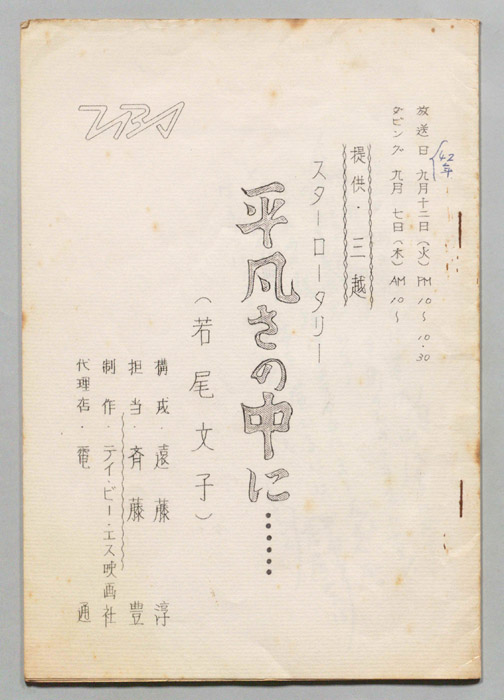 放送日 九月十二日(火) PM 10〜10.30
42年
ダビング 九月 七日(木) AM 10〜
提供・三越
スターロータリー
平凡さの中に……
(若尾文子)
構成・遠藤 淳
担当・斉藤 豊
制作・テイ・ビー・エス映画社
代理店・電 通